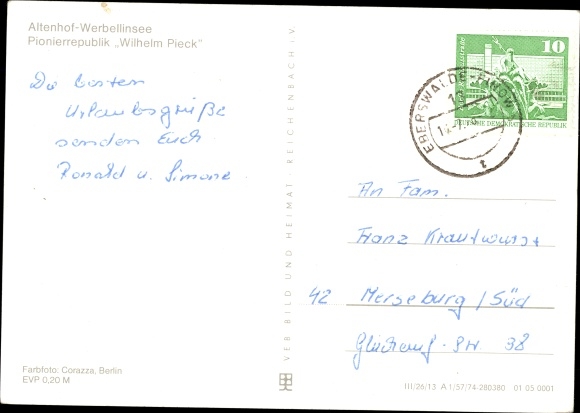 Altenhof-Werbellinsee
Pionierrepublik „Wilhelm Pieck"
Die besten
Urlaubsgrüße
senden Euch
Ronald u. Simone
VEB BILD UND HEIMAT · REICHENBACH i. V.
10
DEUTSCHE DEMOKRATISCHE REPUBLIK
EBERSWALDE-FINOW
t
An Fam.
Franz Krautwurst
42 Merseburg/Süd
Glückauf-Str 38
Farbfoto: Corazza, Berlin
EVP 0,20 M
III/26/13 A 1/57/74-280380 01 05 0001